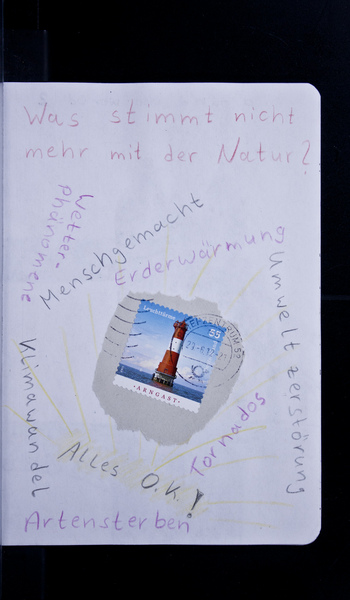 Was stimmt nicht
mehr mit der Natur?
Wetter-
phänomene
Menschgemacht
Erderwärmung
Umwelt zerstörung
Leuchttürme
55
21
ARNGAST
Klimawandel
Tornados
Alles O.K!
Artensterben